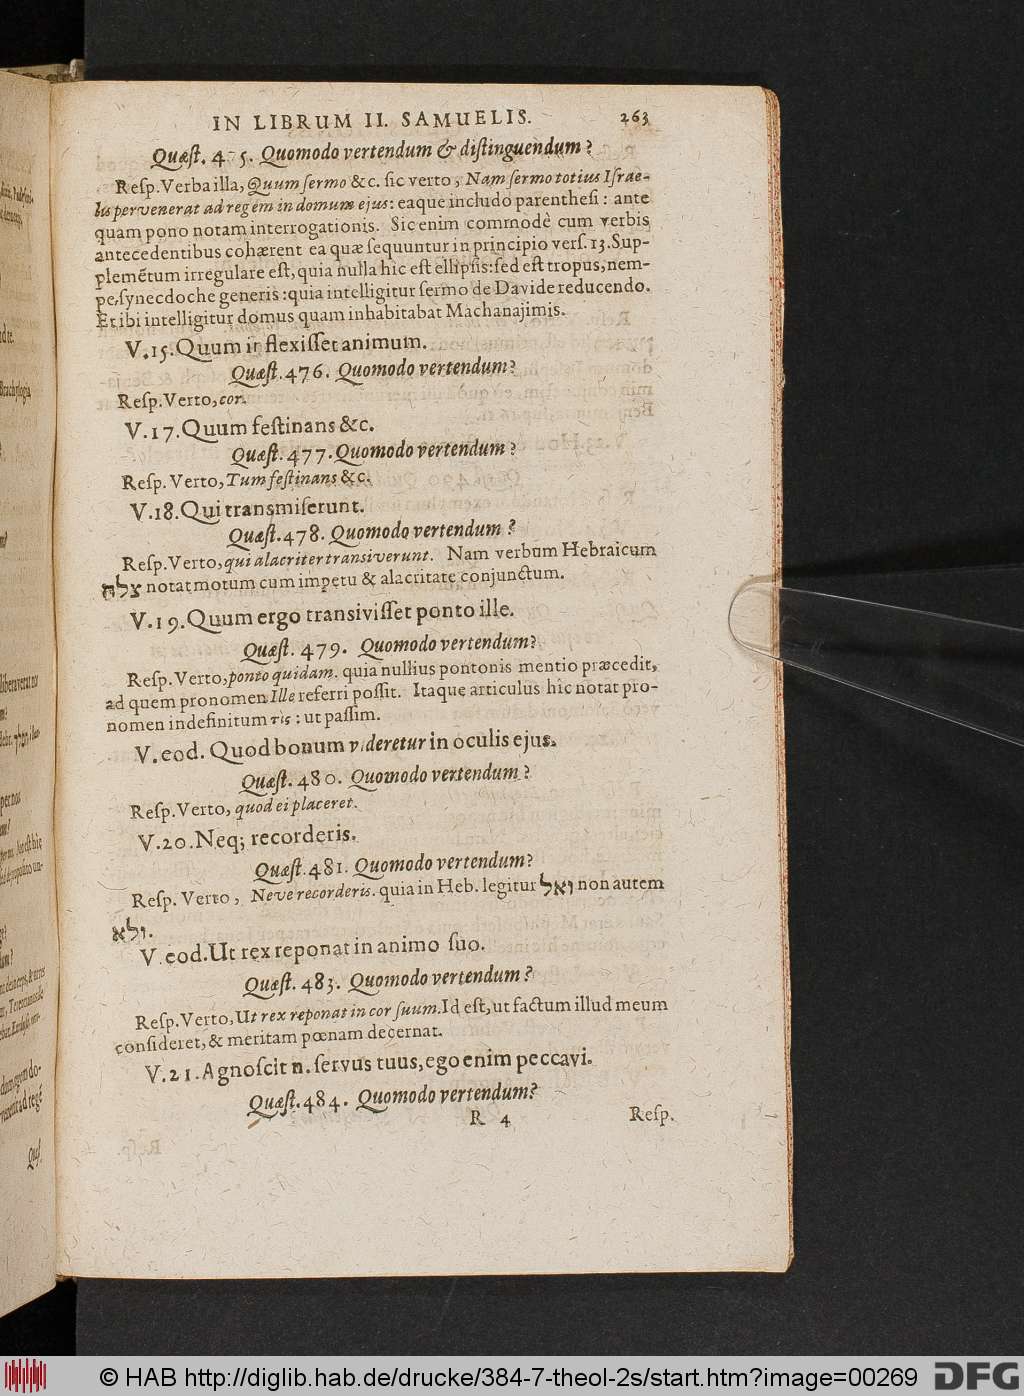 IN LIBRUM II. SAMUELIS. 263
Quæſt. 475. Quomodo vertendum & diſtinguendum?
Reſp. Verba illa, Quum ſermo &c. ſic verto, Nam ſermo totius Iſrae-
lis pervenerat ad regem in domum ejus: eaque includo parentheſi: ante
quam pono notam interrogationis. Sic enim commodè cum verbis
antecedentibus cohærent ea quæ ſequuntur in principio verſ. 13. Sup-
plemẽtum irregulare eſt, quia nulla hîc eſt ellipſis: ſed eſt tropus, nem-
pe, ſynecdoche generis: quia intelligitur ſermo de Davide reducendo.
Et ibi intelligitur domus quam inhabitabat Machanajimis.
V. 15. Quum inflexiſſet animum.
Quæſt. 476. Quomodo vertendum?
Reſp. Verto, cor.
V. 17. Quum feſtinans &c.
Quæſt. 477. Quomodo vertendum?
Reſp. Verto, Tum feſtinans &c.
V. 18. Qui transmiſerunt.
Quæſt. 478. Quomodo vertendum?
Reſp. Verto, qui alacriter transiverunt. Nam verbum Hebraicum
צלח notat motum cum impetu & alacritate conjunctum.
V. 19. Quum ergo transiviſſet ponto ille.
Quæſt. 479. Quomodo vertendum?
Reſp. Verto, ponto quidam. quia nullius pontonis mentio præcedit,
ad quem pronomen Ille referri poſſit. Itaque articulus hîc notat pro-
nomen indefinitum τις: ut paſſim.
V. eod. Quod bonum videretur in oculis ejus.
Quæſt. 480. Quomodo vertendum?
Reſp. Verto, quod ei placeret.
V. 20. Neq; recorderis.
Quæſt. 481. Quomodo vertendum?
Reſp. Verto, Neve recorderis. quia in Heb. legitur ואל non autem
ולא.
V. eod. Ut rex reponat in animo ſuo.
Quæſt. 483. Quomodo vertendum?
Reſp. Verto, Ut rex reponat in cor ſuum. Id eſt, ut factum illud meum
conſideret, & meritam pœnam decernat.
V. 21. Agnoſcit n. ſervus tuus, ego enim peccavi.
Quæſt. 484. Quomodo vertendum?
R 4 Reſp.
© HAB http://diglib.hab.de/drucke/384-7-theol-2s/start.htm?image=00269 DFG